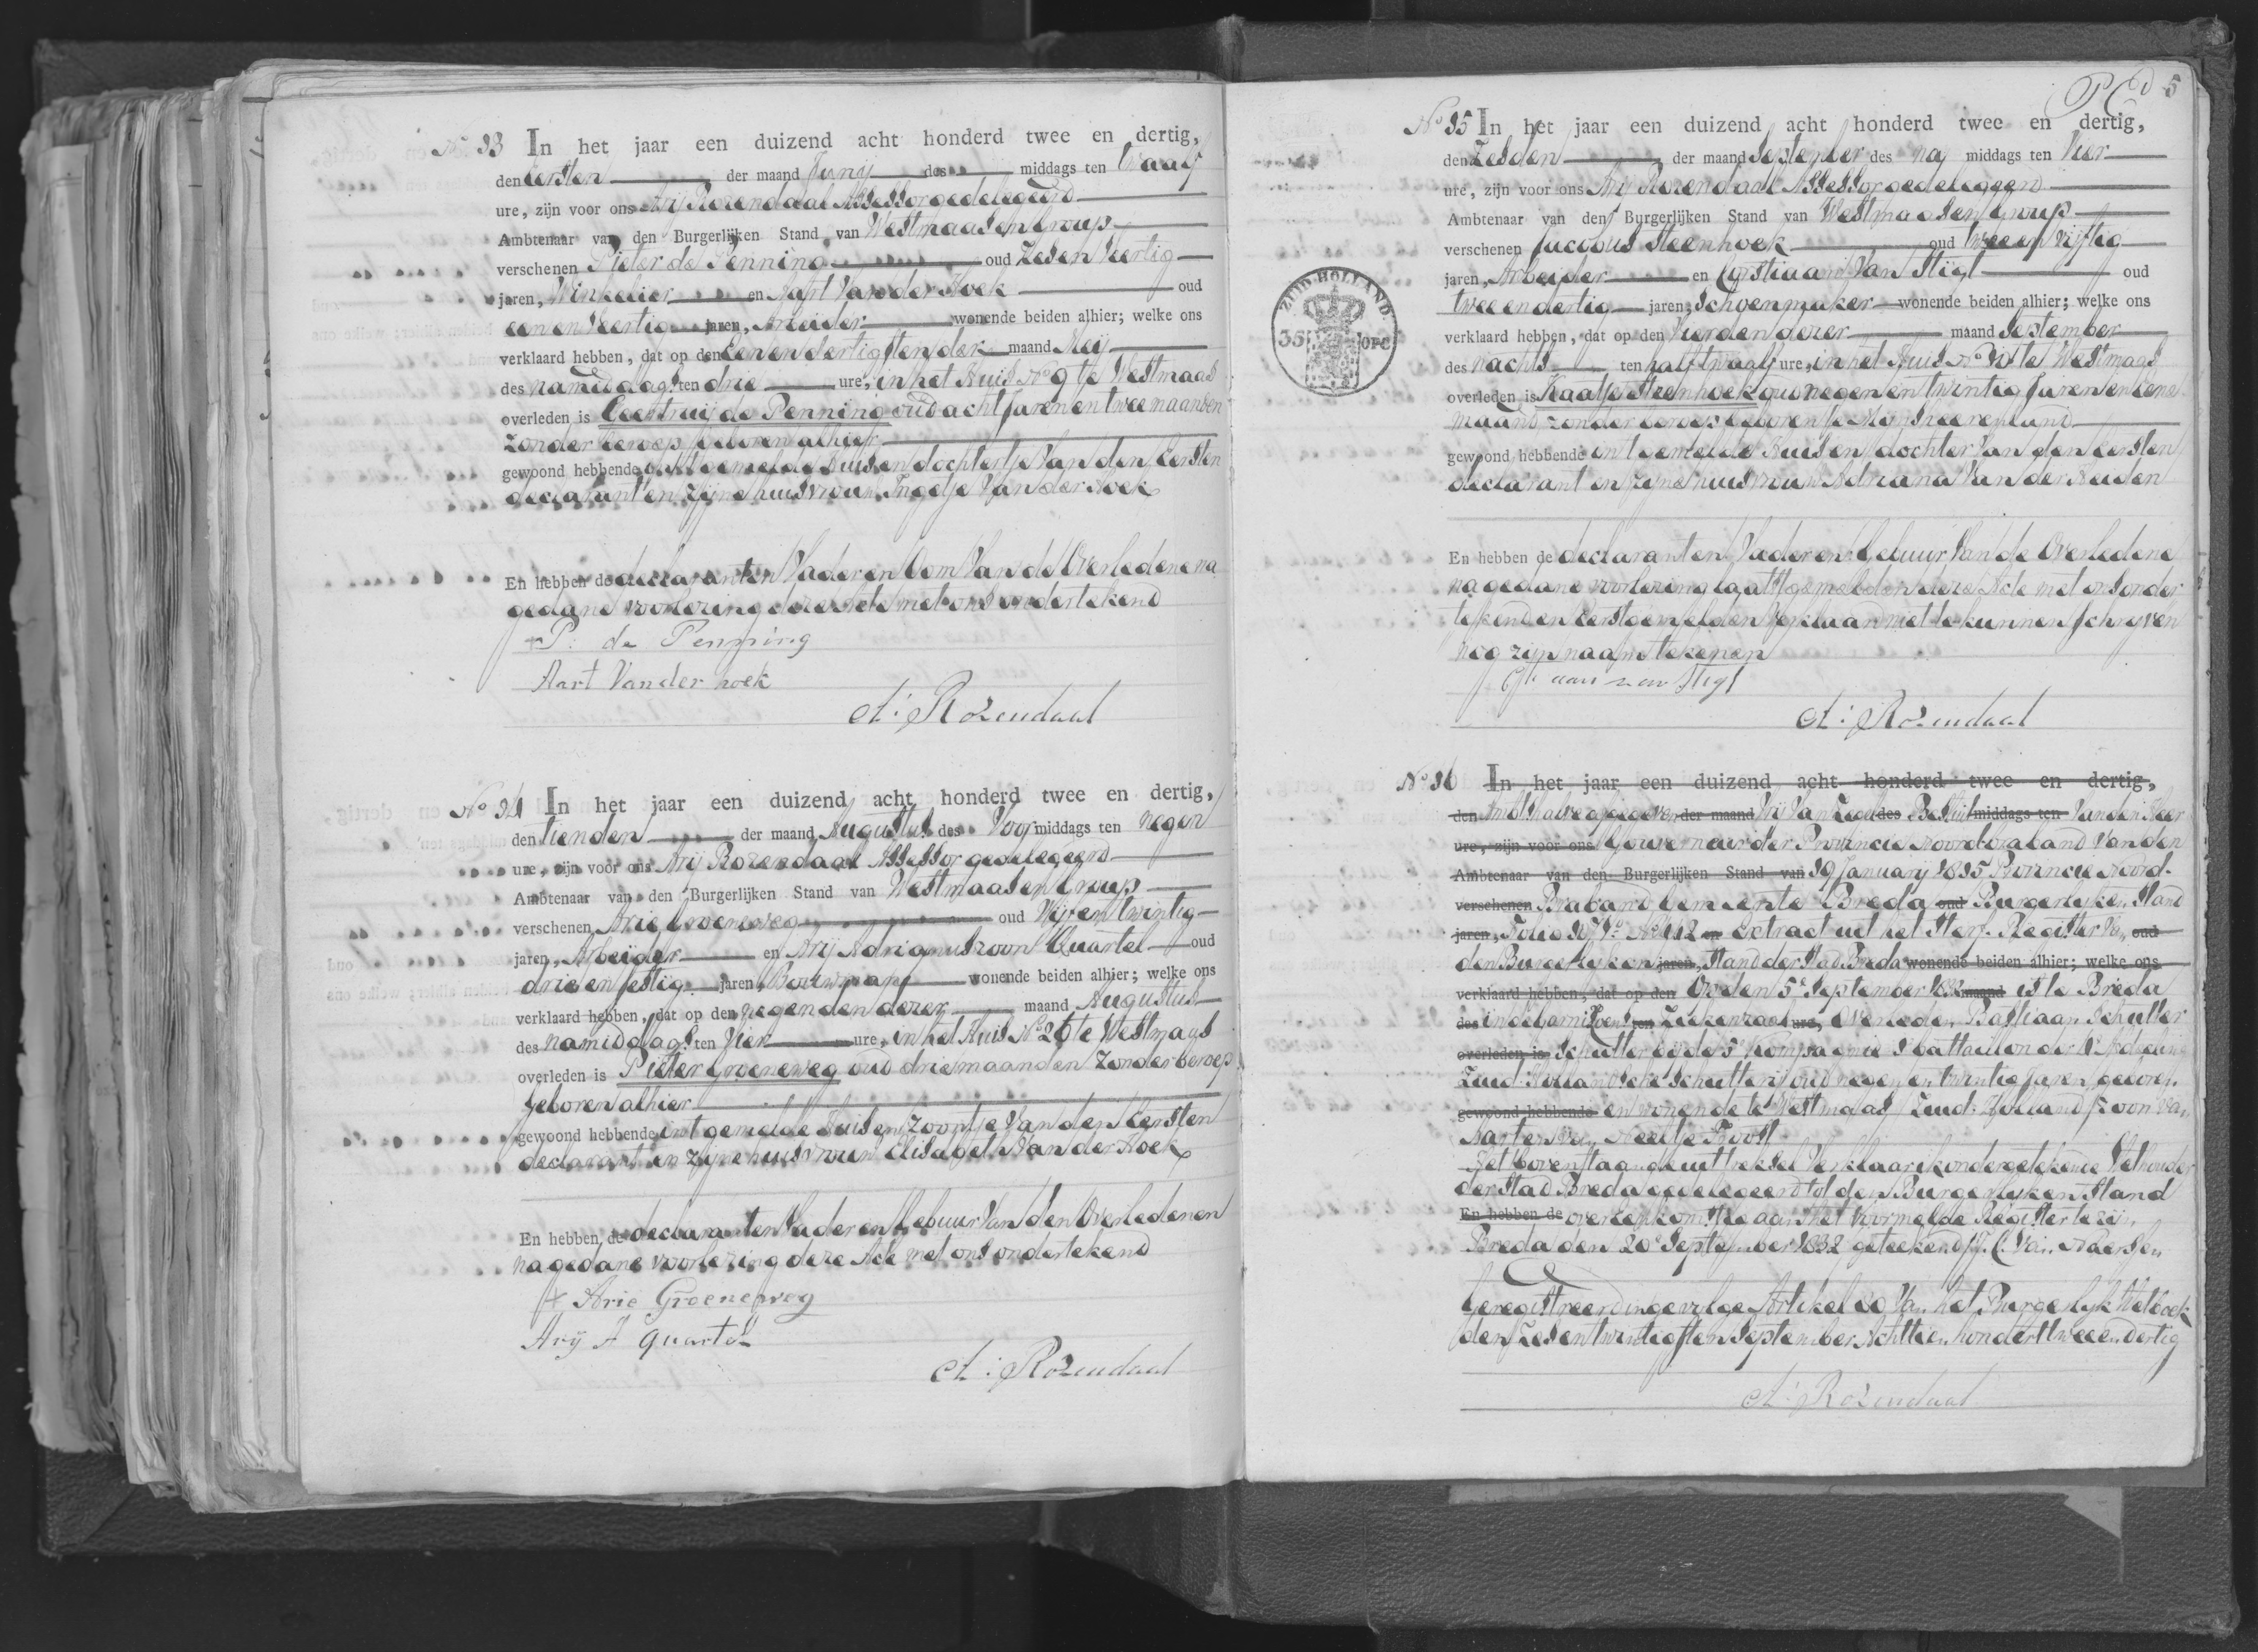 No 33 In het jaar een duizend acht honderd twee en dertig,
den Eersten der maand Junij des middags ten twaalf
ure, zijn voor ons Arij Rozendaal Assessor gedelegeerd
Ambtenaar van den Burgerlijken Stand van Westmaas en Group
verschenen Pieter de Penning oud Zes en Veertig
jaren, Winkelier en Aart Van der Hoek oud
een en Veertig jaren, Arbeider wonende beiden alhier; welke ons
verklaard hebben, dat op den Een en dertigsten der maand Meij
des namiddags ten drie ure, in het Huis No 9 te Westmaas
overleden is Geertruij de Penning oud acht Jaren en twee maanden
Zonder beroep geboren alhier
gewoond hebbende in het gemelde Huis en dochtertje Van den Eersten
declarant en zijne huisvrouw Ingetje Van der Hoek
En hebben de declaranten Vader en Oom Van de Overledene na
gedane voorlezing deze Acte met ons ondertekend
P: de Penning
Aart Van der hoek
A: Rozendaal
No 34 In het jaar een duizend acht honderd twee en dertig,
den tienden der maand Augustus des Voor middags ten negen
ure, zijn voor ons Arij Rozendaal Assessor gedelegeerd
Ambtenaar van den Burgerlijken Stand van Westmaas en Group
verschenen Arie Groeneweg oud Vijf en twintig
jaren, Arbeider en Arij Adrianuszoon Quartel oud
drie en sestig jaren Bouwman wonende beiden alhier; welke ons
verklaard hebben, dat op den negenden dezer maand Augustus
des namiddags ten Vier ure, in het Huis No 26 te Westmaas
overleden is Pieter Groeneweg oud drie maanden Zonder beroep
geboren alhier
gewoond hebbende in't gemelde Huis en Zoontje Van den Eersten
declarant en zijne huisvrouw Elisabeth Van der Hoek
En hebben de declaranten Vader en Gebuur Van den Overledenen
na gedane voorlezing deze Acte met ons ondertekend
Arie Groeneweg
Arij A quartel
A: Rozendaal
5
No 35 In het jaar een duizend acht honderd twee en dertig,
den Zesden der maand September des na middags ten Vier
ure, zijn voor ons Arij Rozendaal Assessor gedelegeerd
Ambtenaar van den Burgerlijken Stand van Westmaas en Group
verschenen Jacobus Steenhoek oud twee en Vijftig
jaren, Arbeider en Christiaan Van Stigt oud
twee en dertig jaren, Schoenmaker wonende beiden alhier; welke ons
verklaard hebben, dat op den Vierden dezer maand September
des nachts ten half twaalf ure, in het Huis No te Westmaas
overleden is Kaatje Steenhoek oud negen en twintig Jaren en Eene
maand zonder beroep geboren te Monsteereyland
gewoond hebbende in't gemelde Huis en dochter Van den Eersten
declarant en zijne huisvrouw Adriana Van der Heiden
En hebben de declaranten Vader en Gebuur Van de Overledene
na gedane voorlezing laatstgemelden deze Acte met ons onder
tekend en Eerstgemelden Verklaard niet te kunnen schryven
nog zijn naam tekenen
van Stigt
A: Rozendaal
ZUID-HOLLAND
35 OPC
No 36 In het jaar een duizend acht honderd twee en dertig,
den Ambtshalve afgegeven der maand Vrij Van Zegel des Besluit middags ten Van den Heer
ure, zijn voor ons Gouverneur der Provincie Noordbraband Van den
Ambtenaar van den Burgerlijken Stand van 19 January 1815 Provincie Noord-
verschenen Braband Gemeente Breda oud Burgerlyken Stand
jaren, Folio No 412 en Extract uit het Sterf Register Van oud
den Burgerlyken jaren, Stand der Stad Breda wonende beiden alhier; welke ons
verklaard hebben, dat op den Op den 5e September 1832 maand is te Breda
des in de Garnizoens ten Ziekenzaal ure, Overleden Bastiaan Schutter
overleden is Schutter by de 5e Kompagnie battaillon der Afdeeling
Zuid Hollandsche Schuttery oud negen en twintig Jaren geboren
gewoond hebbende en wonende te Westmaas Zuid Holland Zoon Van
Maarten en Neeltje Troost
Het bovenstaande uittreksel Verklaar ik ondergetekende Wethouder
der Stad Breda gedelegeerd tot den Burgerlyken Stand
En hebben de overeenkomstig aan het Voormelde Register te zijn
Breda den 20e September 1832 geteekend J. C. Van
Geregistreerd ingevolge Artikel 80 Van het Burgerlyk Wetboek
den Zes en twintigsten September Achttien hondert twee en dertig
A: Rozendaal